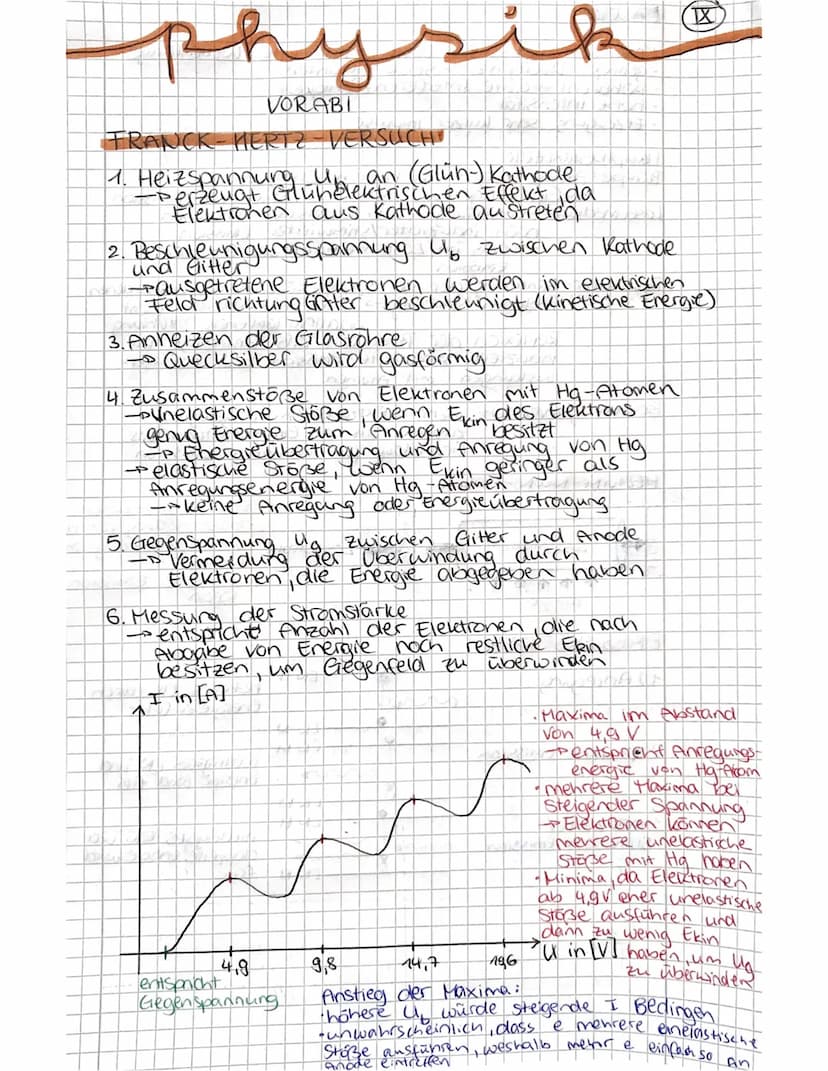 physik
IX
VORABI
FRANCK-HERTZ-VERSUCH
1. Heizspannung Uh an (Glüh-) Kathode
→ erzeugt Glühelektrischen Effekt, da
Elektronen aus Kathode austreten
2. Beschleunigungsspannung Ub zwischen Kathode
und Gitter
→ ausgetretene Elektronen werden im elektrischen
Feld richtung Gitter beschleunigt (kinetische Energie)
3. Anheizen der Glasröhre
→ Quecksilber wird gasförmig
4. Zusammenstöße von Elektronen mit Hg-Atomen
→ unelastische Stöße, wenn Ekin des Elektrons
genug Energie zum Anregen besitzt
→ Energieübertragung und Anregung von Hg
→ elastische Stöße, wenn Ekin geringer als
Anregungsenergie von Hg-Atomen
→ keine Anregung oder Energieübertragung
5. Gegenspannung Ug zwischen Gitter und Anode
→ Vermeidung der Überwindung durch
Elektronen, die Energie abgegeben haben
6. Messung der Stromstärke
→ entspricht Anzahl der Elektronen, die nach
Abgabe von Energie noch restliche Ekin
besitzen, um Gegenfeld zu überwinden
I in [A]
· Maxima im Abstand
von 4,9 V
→ entspricht Anregungs-
energie von Hg-Atom
· mehrere Maxima bei
steigender Spannung
→ Elektronen können
mehrere unelastische
Stöße mit Hg haben
· Minima, da Elektronen
ab 4,9V eher unelastische
Stöße ausführen und
dann zu wenig Ekin
haben, um Ug
zu überwinden
4,9 9,8 14,7 19,6 U in [V]
entspricht
Gegenspannung
Anstieg der Maxima:
· höhere Ub würde steigende I Bedingen
· unwahrscheinlich, dass e mehrere unelastische
Stöße ausführen, weshalb mehr e einfach so an
Anode eintreffen